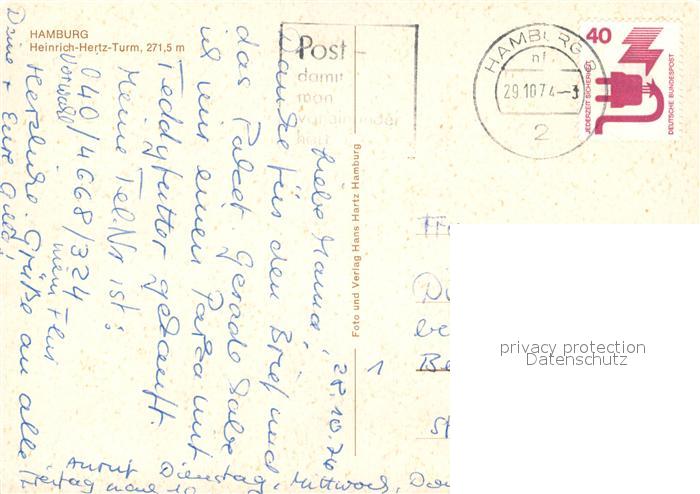 HAMBURG
Heinrich-Hertz-Turm, 271,5 m
Post-
damit
man
voneinander
hört
HAMBURG
nf
29.10.74-3
2
40
JEDERZEIT SICHERHEIT
DEUTSCHE BUNDESPOST
Foto und Verlag Hans Hartz Hamburg
28.10.74
Liebe Mama!
Danke für den Brief und
das Paket. Gerade habe
ich mir einen Parka mit
Teddyfutter gekauft.
Meine Tel.Nr ist:
040/4668/324
Vorwahl
mein Flur
Herzliche Grüße an alle
Deine + Eure
Anruf Dienstag, Mittwoch,
Freitag nach 19
1
privacy protection
Datenschutz